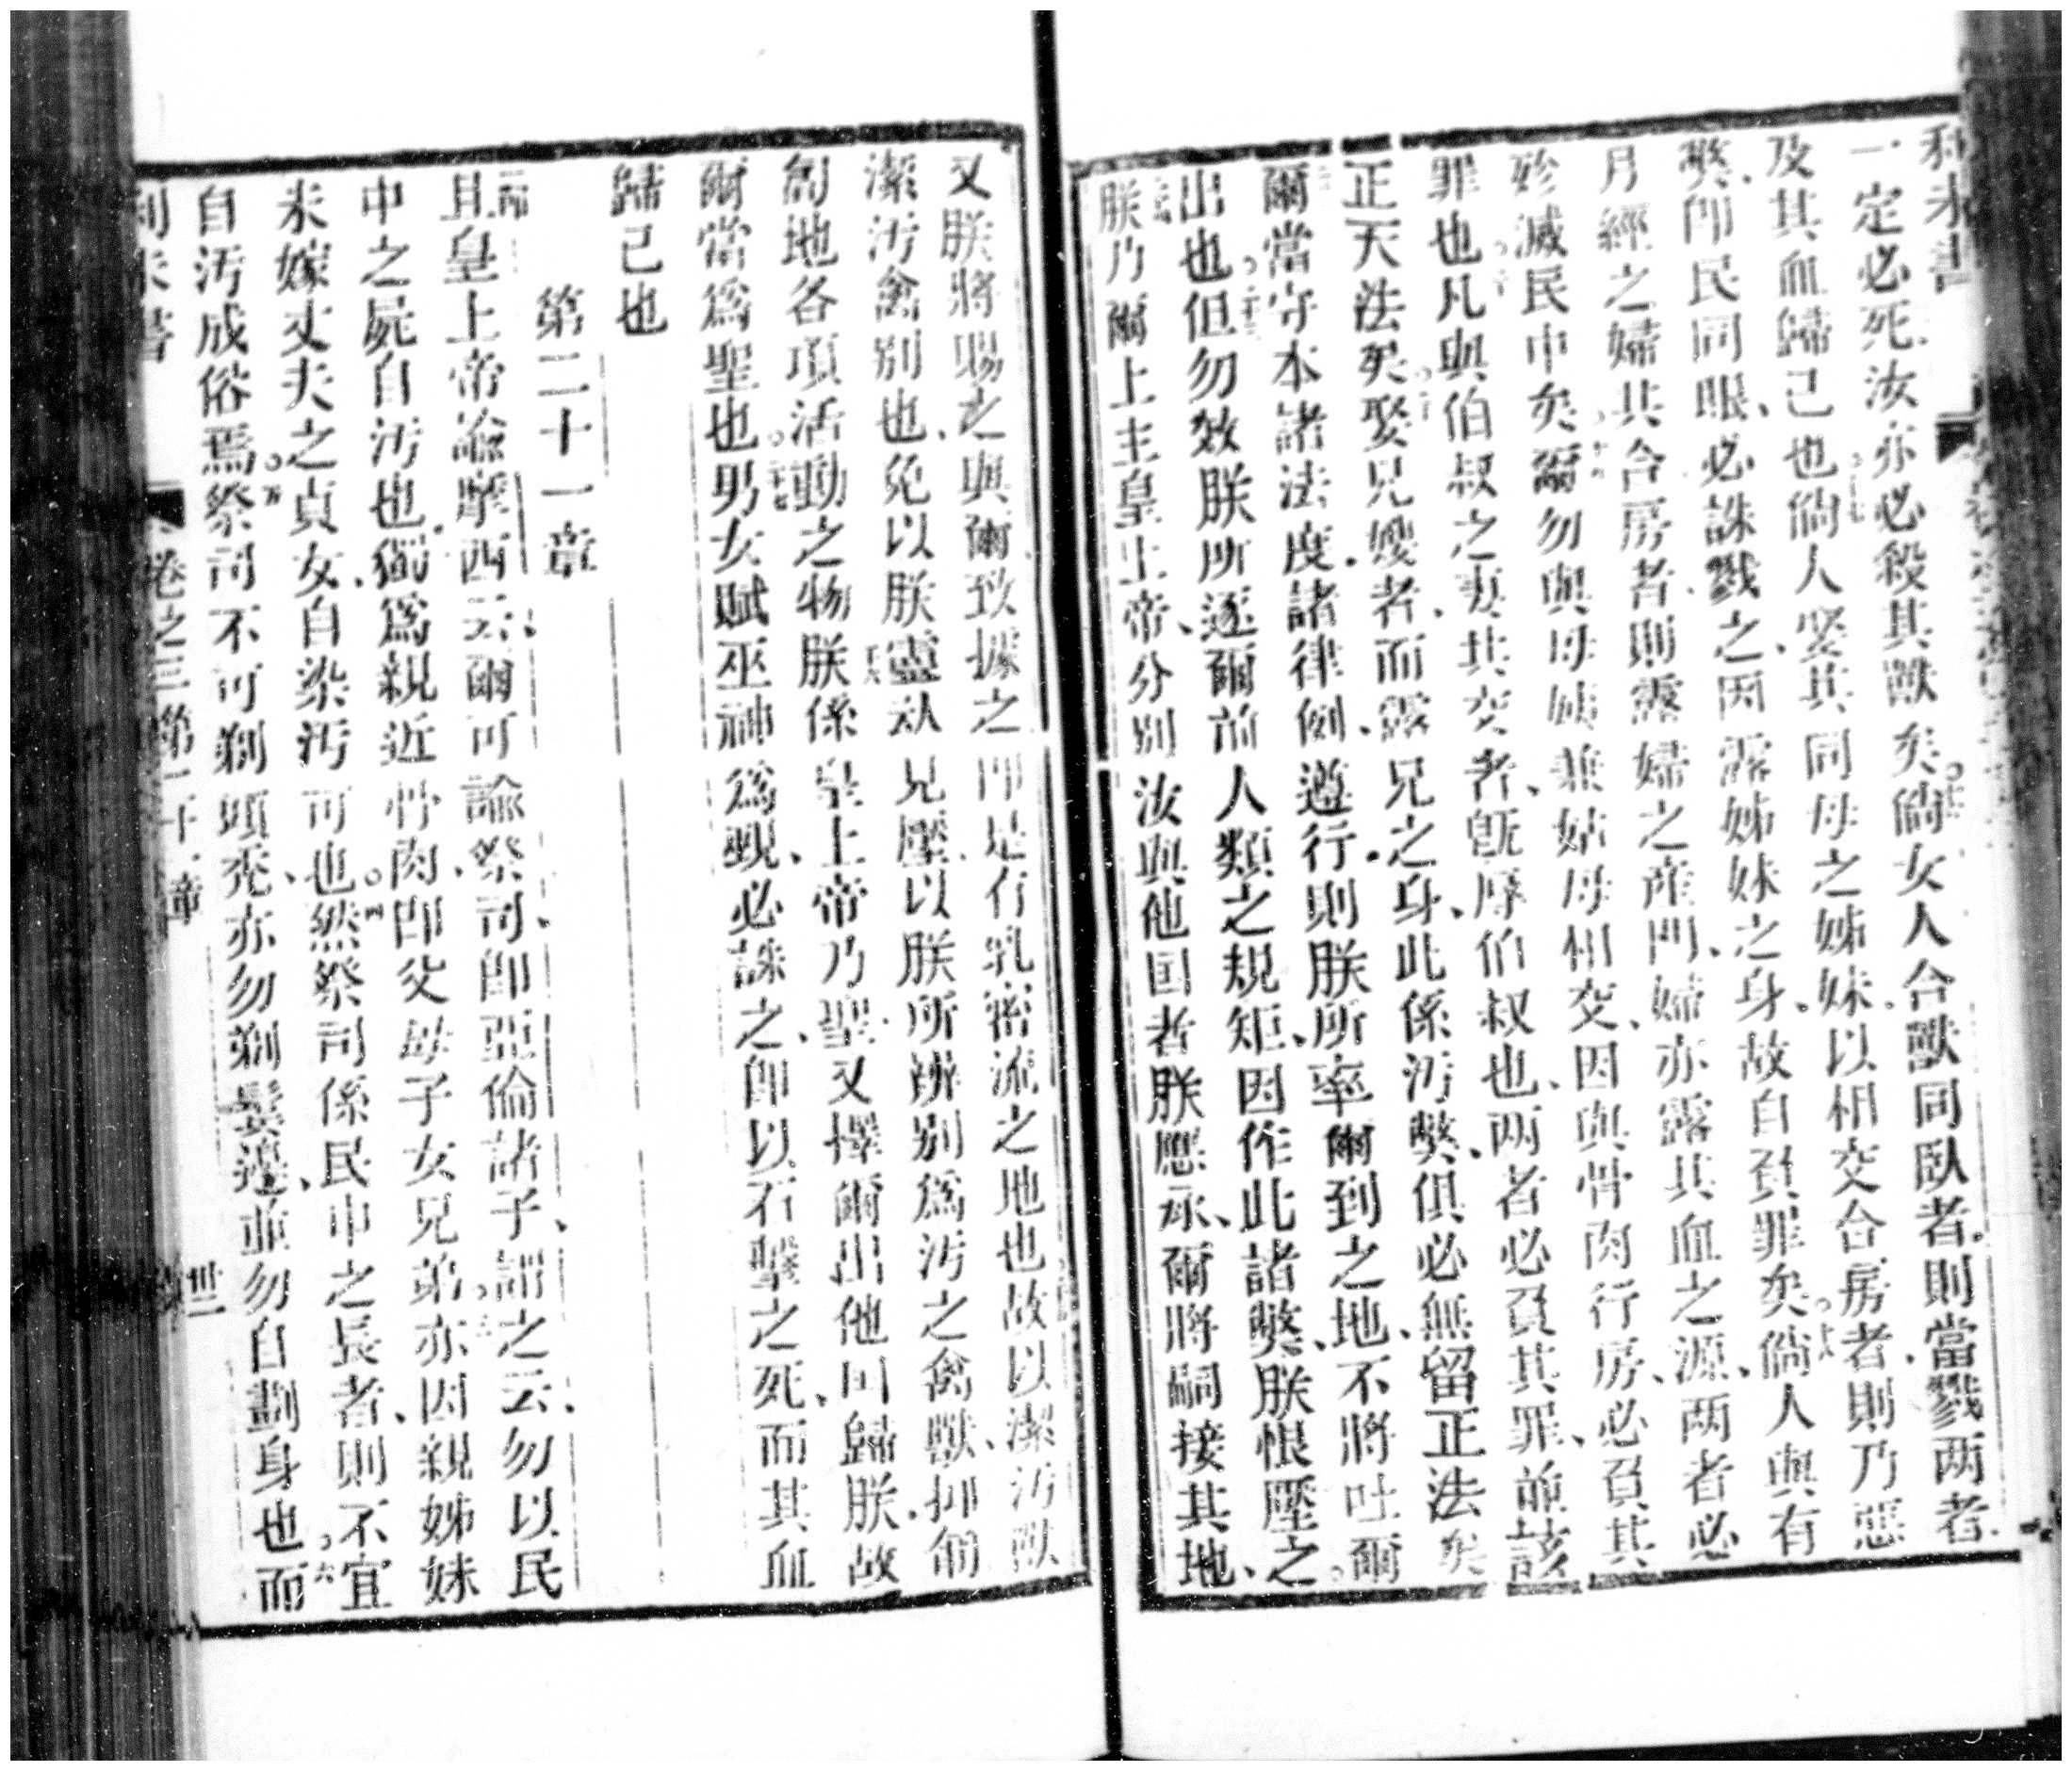 利未書
一定必死、汝亦必殺其獸矣。倘女人合獸同臥者、則當戮两者
及其血歸己也。倘人娶其同母之姊妹、以相交合房者、則乃惡
弊、即民同眼、必誅戮之、因露姊妹之身、故自負罪矣。倘人與有
月經之婦共合房者、則露婦之產門、婦亦露其血之源、两者必
殄滅民中矣。爾勿與母姨兼姑母相交、因與骨肉行房、必負其
罪也。凡與伯叔之妻共交者、旣辱伯叔也、两者必負其罪、並該
正天法矣。娶兄嫂者、而露兄之身、此係汚弊、俱必無留正法矣
爾當守本諸法度、諸律例、遵行、則朕所率爾到之地、不將吐爾
出也。但勿效朕所逐爾前人類之規矩、因作此諸弊、朕恨壓之。
朕乃爾上主皇上帝、分別汝與他国者、朕應承、爾將嗣接其地、
又朕將賜之與爾、致據之、即是有乳密流之地也。故以潔汚獸
潔汚禽別也、免以朕靈魂見壓、以朕所辨別爲汚之禽獸、抑匍
匐地各項活動之物。朕係皇上帝乃聖、又擇爾出他囯歸朕、故
爾當爲聖也。男女賦巫神爲覡、必誅之、即以石擊之死、而其血
歸己也
第二十一章
一節
且皇上帝諭摩西云、爾可諭祭司、即亞倫諸子、謂之云、勿以民
中之屍自汚也。獨爲親近骨肉、即父母子女兄弟。亦因親姊妹
未嫁丈夫之貞女、自染汚可也。然祭司係民中之長者、則不宜
自汚成俗焉。祭司不可剃頭禿、亦勿剃鬚邊、並勿自劃身也。而
利未書
卷之三第二十一章
卅二